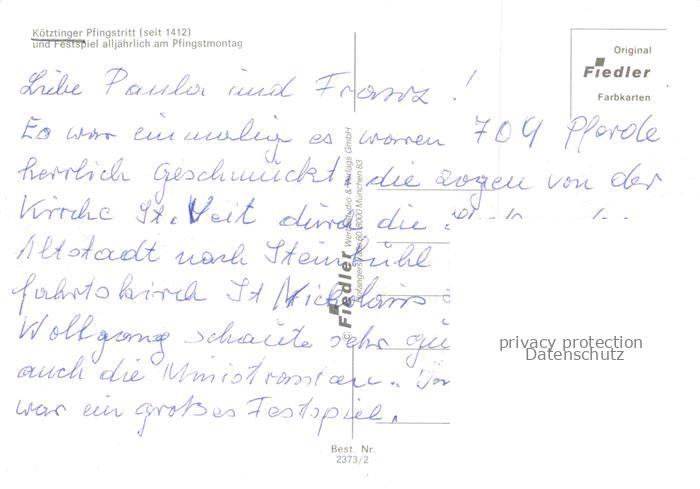 Kötztinger Pfingstritt (seit 1412)
und Festspiel alljährlich am Pfingstmontag
Original
Fiedler
Farbkarten
Liebe Paula und Franz!
Es war einmalig es waren 704 Pferde
herrlich geschmückt, die zogen von der
Kirche St. Veit durch die
Altstadt nach Steinbühl
fahrtskirch St Nickolaus
Wolfgang schaute sehr gu
auch die Ministranten.
war ein großes Festspiel.
© Fiedler Werbestudio & Verlags GmbH
8000 München 83
privacy protection
Datenschutz
Best. Nr.
2373/2